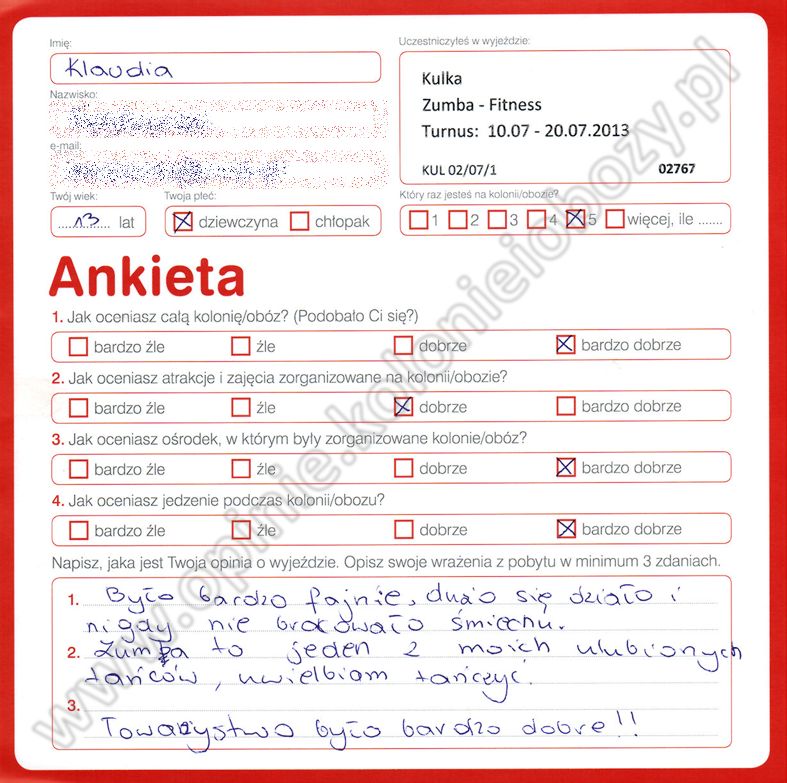 Imię:
Klaudia
Nazwisko:
e-mail:
Twój wiek:
....13.... lat
Twoja płeć:
dziewczyna chłopak
Uczestniczyłeś w wyjeździe:
Kulka
Zumba - Fitness
Turnus: 10.07 - 20.07.2013
KUL 02/07/1 02767
Który raz jesteś na kolonii/obozie?
1 2 3 4 5 więcej, ile .......
Ankieta
1. Jak oceniasz całą kolonię/obóz? (Podobało Ci się?)
bardzo źle źle dobrze bardzo dobrze
2. Jak oceniasz atrakcje i zajęcia zorganizowane na kolonii/obozie?
bardzo źle źle dobrze bardzo dobrze
3. Jak oceniasz ośrodek, w którym były zorganizowane kolonie/obóz?
bardzo źle źle dobrze bardzo dobrze
4. Jak oceniasz jedzenie podczas kolonii/obozu?
bardzo źle źle dobrze bardzo dobrze
Napisz, jaka jest Twoja opinia o wyjeździe. Opisz swoje wrażenia z pobytu w minimum 3 zdaniach.
1. Było bardzo fajnie, dużo się działo i
nigdy nie brakowało śmiechu.
2. Zumba to jeden z moich ulubionych
tańców, uwielbiam tańczyć.
3.
Towarzystwo było bardzo dobre!!
www.opinie.kolonieiobozy.pl